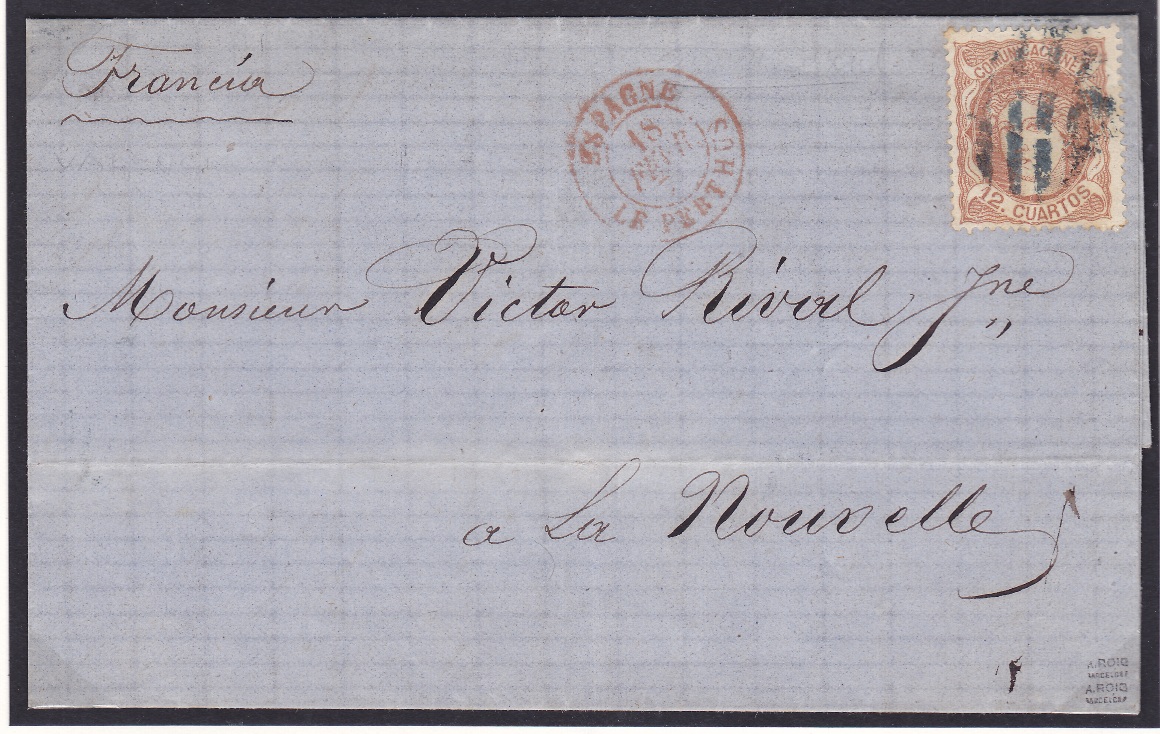 Francía
ESPAGNE
18
LE PERTHUS
COMUNICACIONES
12. CUARTOS
Monsieur Victor Rival Jne
a La Nouvelle
A.ROIG
BARCELONA
A.ROIG
BARCELONA